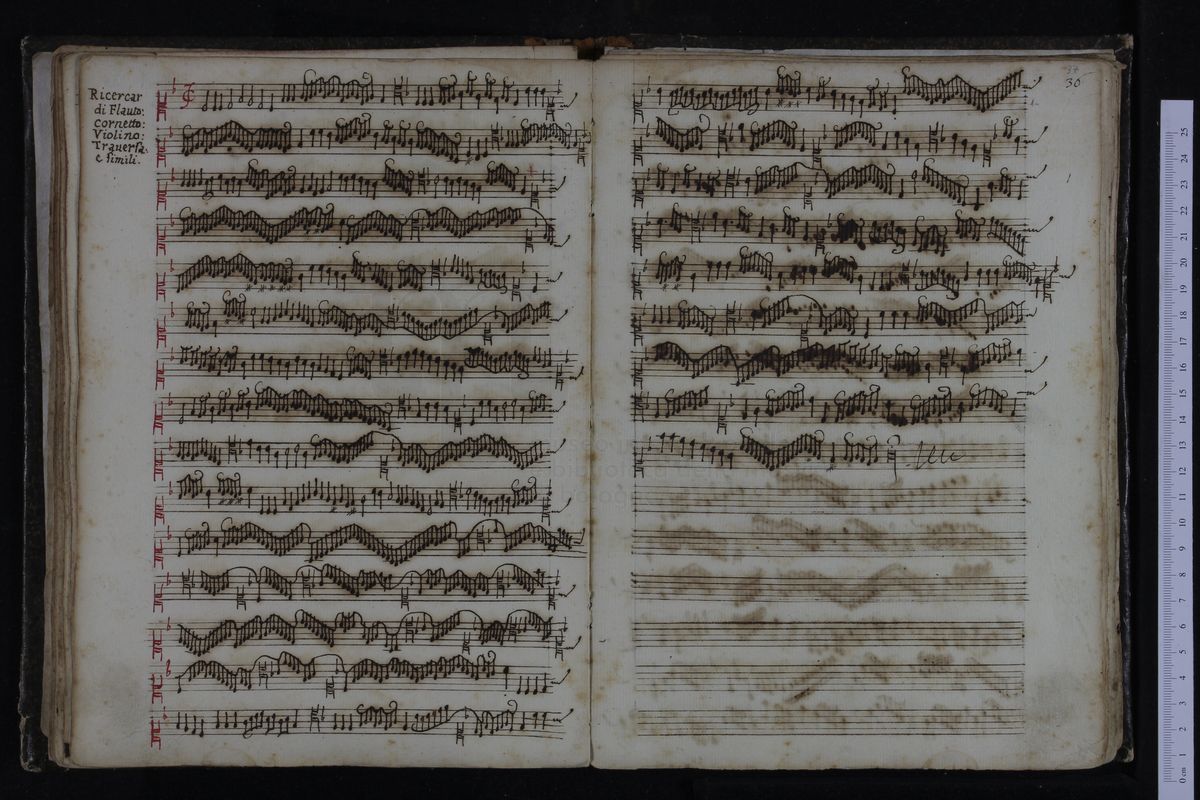 Ricercar
di Flauto:
cornetto:
Violino:
Trauersa
e simili.
30
25
24
23
22
21
20
19
18
17
16
15
14
13
12
11
10
9
8
7
6
5
4
3
2
1
0 cm